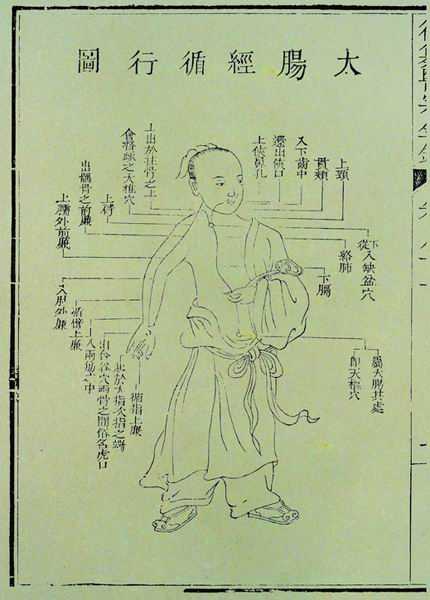 太腸經循行圖
上頸
貫頰
入下齒中
還出俠口
上俠鼻孔
上出於柱骨之上
會督脉之大椎穴
出髃骨之前廉
上肘
上臑外前廉
從下入缺盆穴
絡肺
下膈
屬大腸其處
即天樞穴
入肘外廉
循臂上廉
入兩筋之中
出合谷穴兩骨之間俗名虎口
起於大指次指之端
循指上廉